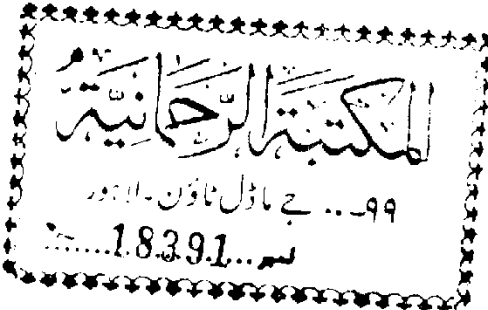 المكتبة الرحمانية
۹۹۔... جے ماڈل ٹاؤن۔ لاہور
نمبر...18391......